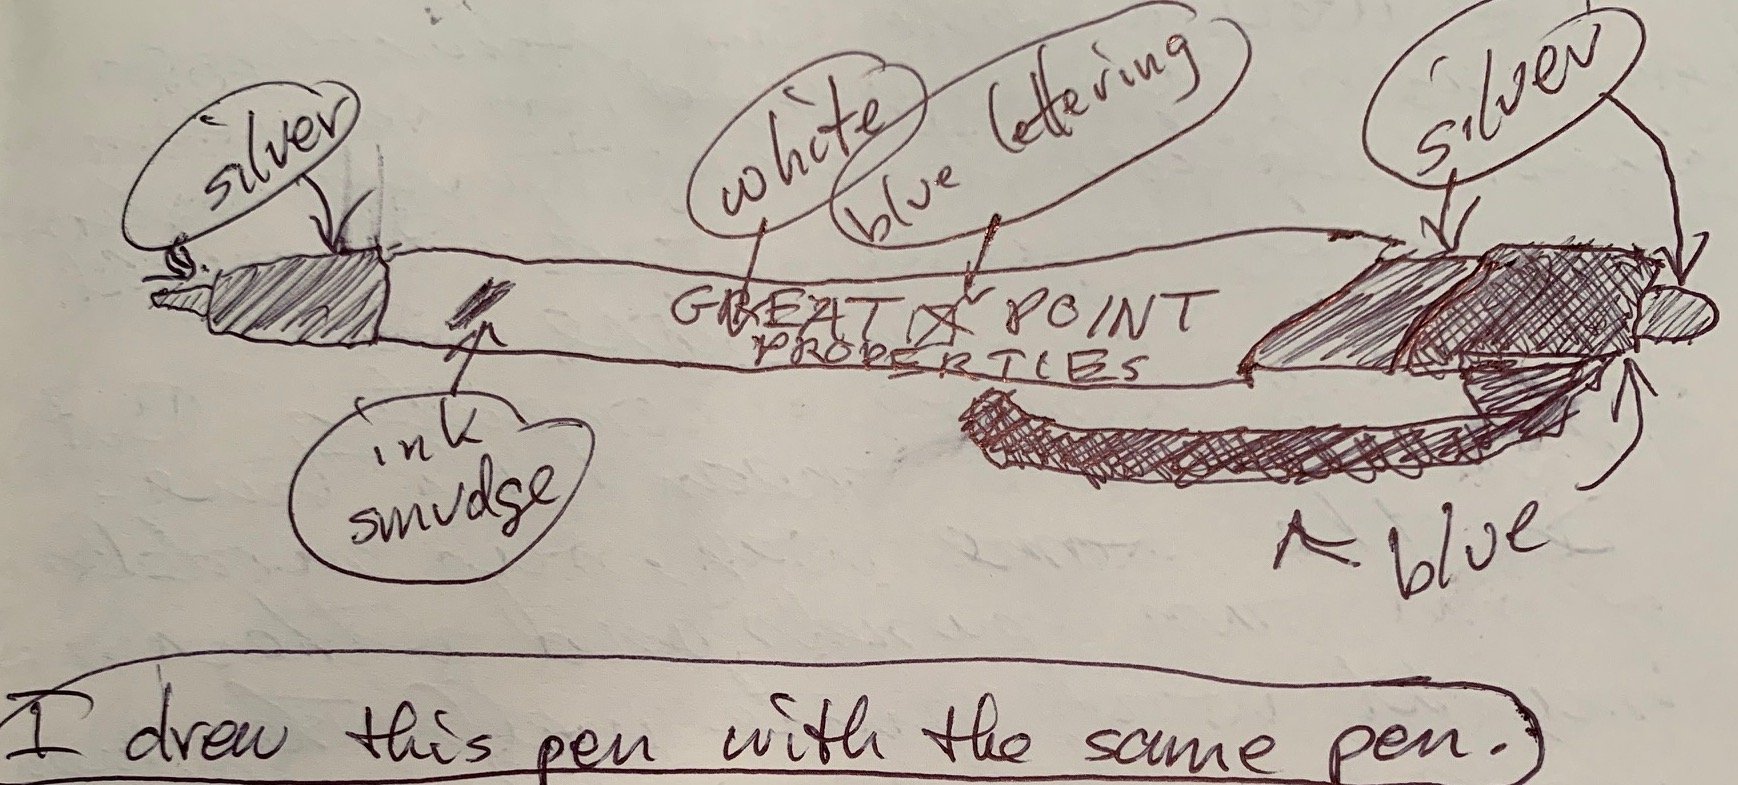 silver
white
blue lettering
silver
GREAT POINT
PROPERTIES
ink
smudge
blue
I drew this pen with the same pen.